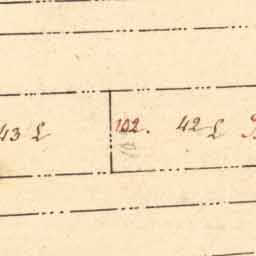 43 L 102. 42 L